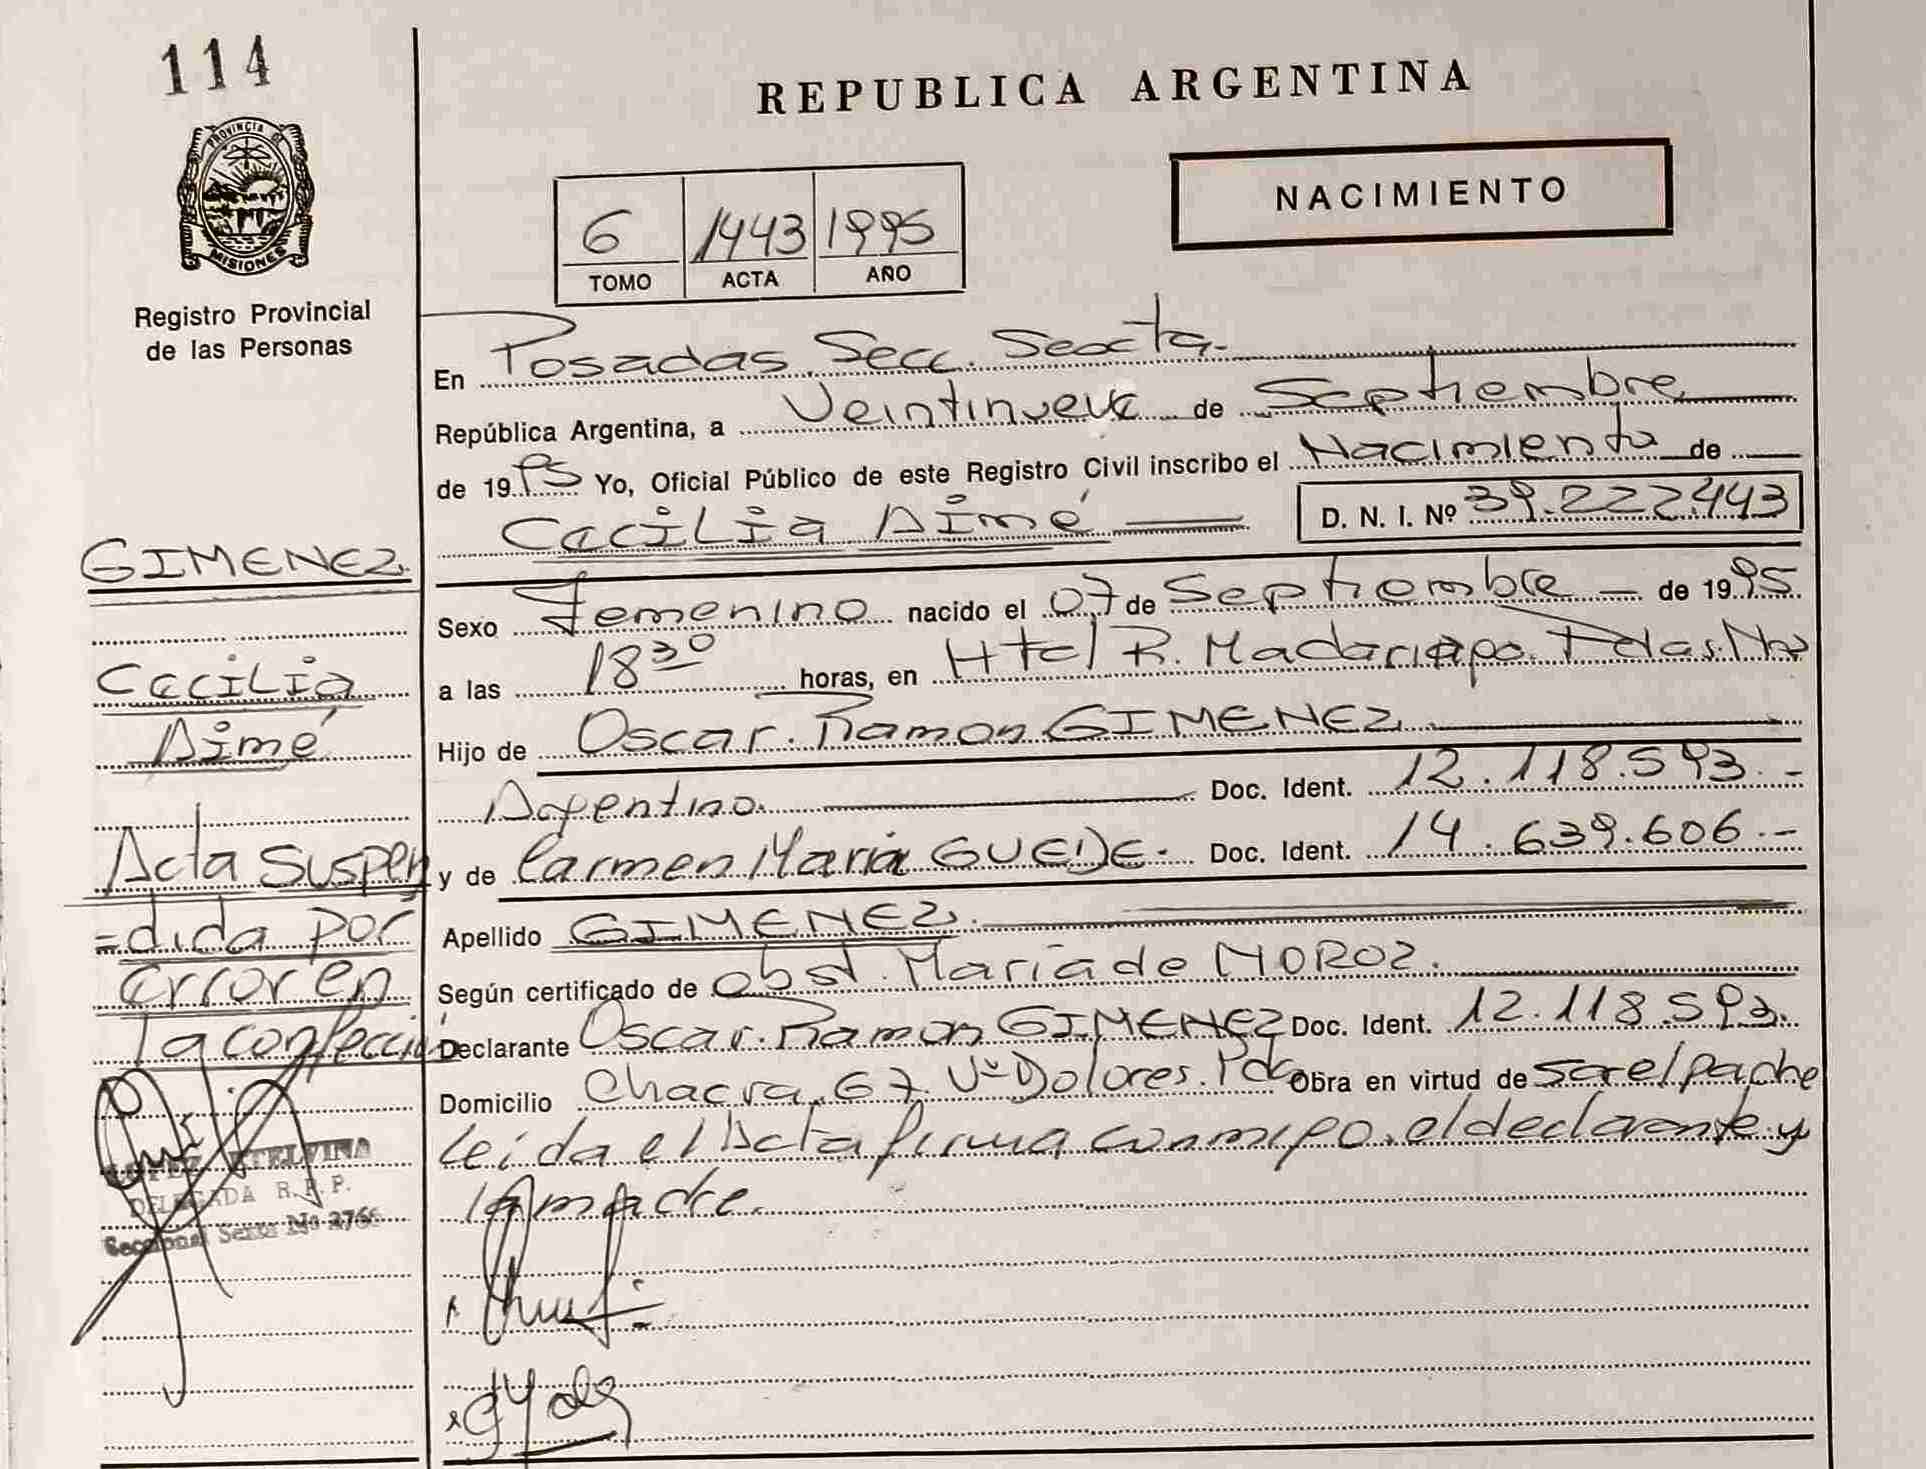 114
REPUBLICA ARGENTINA
PROVINCIA DE
MISIONES
Registro Provincial
de las Personas
NACIMIENTO
6 1443 1995
TOMO ACTA AÑO
En Posadas, Secc. Sexta.
República Argentina, a Veintinueve de Septiembre
de 1995 Yo, Oficial Público de este Registro Civil inscribo el Nacimiento de
Cecilia Aimé D. N. I. Nº 39.222.443
Sexo Femenino nacido el 07 de Septiembre de 1995.
a las 18 30 horas, en Htal R. Madariaga. Pdas. Mnes
Hijo de Oscar Ramon GIMENEZ
Argentino. Doc. Ident. 12.118.593.-
y de Carmen Maria GUEDE. Doc. Ident. 14.639.606.-
Apellido GIMENEZ.
Según certificado de obst. Maria de MOROZ.
Declarante Oscar Ramon GIMENEZ Doc. Ident. 12.118.593.
Domicilio Chacra 67. Vº Dolores. Pdas Obra en virtud de ser el padre
Leída el Acta firma conmigo el declarante y
la madre.
GIMENEZ.
Cecilia
Aimé
Acta Suspen
=dida por
error en
la confección
LOPEZ ETELVINA
DELEGADA R. P. P.
Seccional Sexta Nº 2766